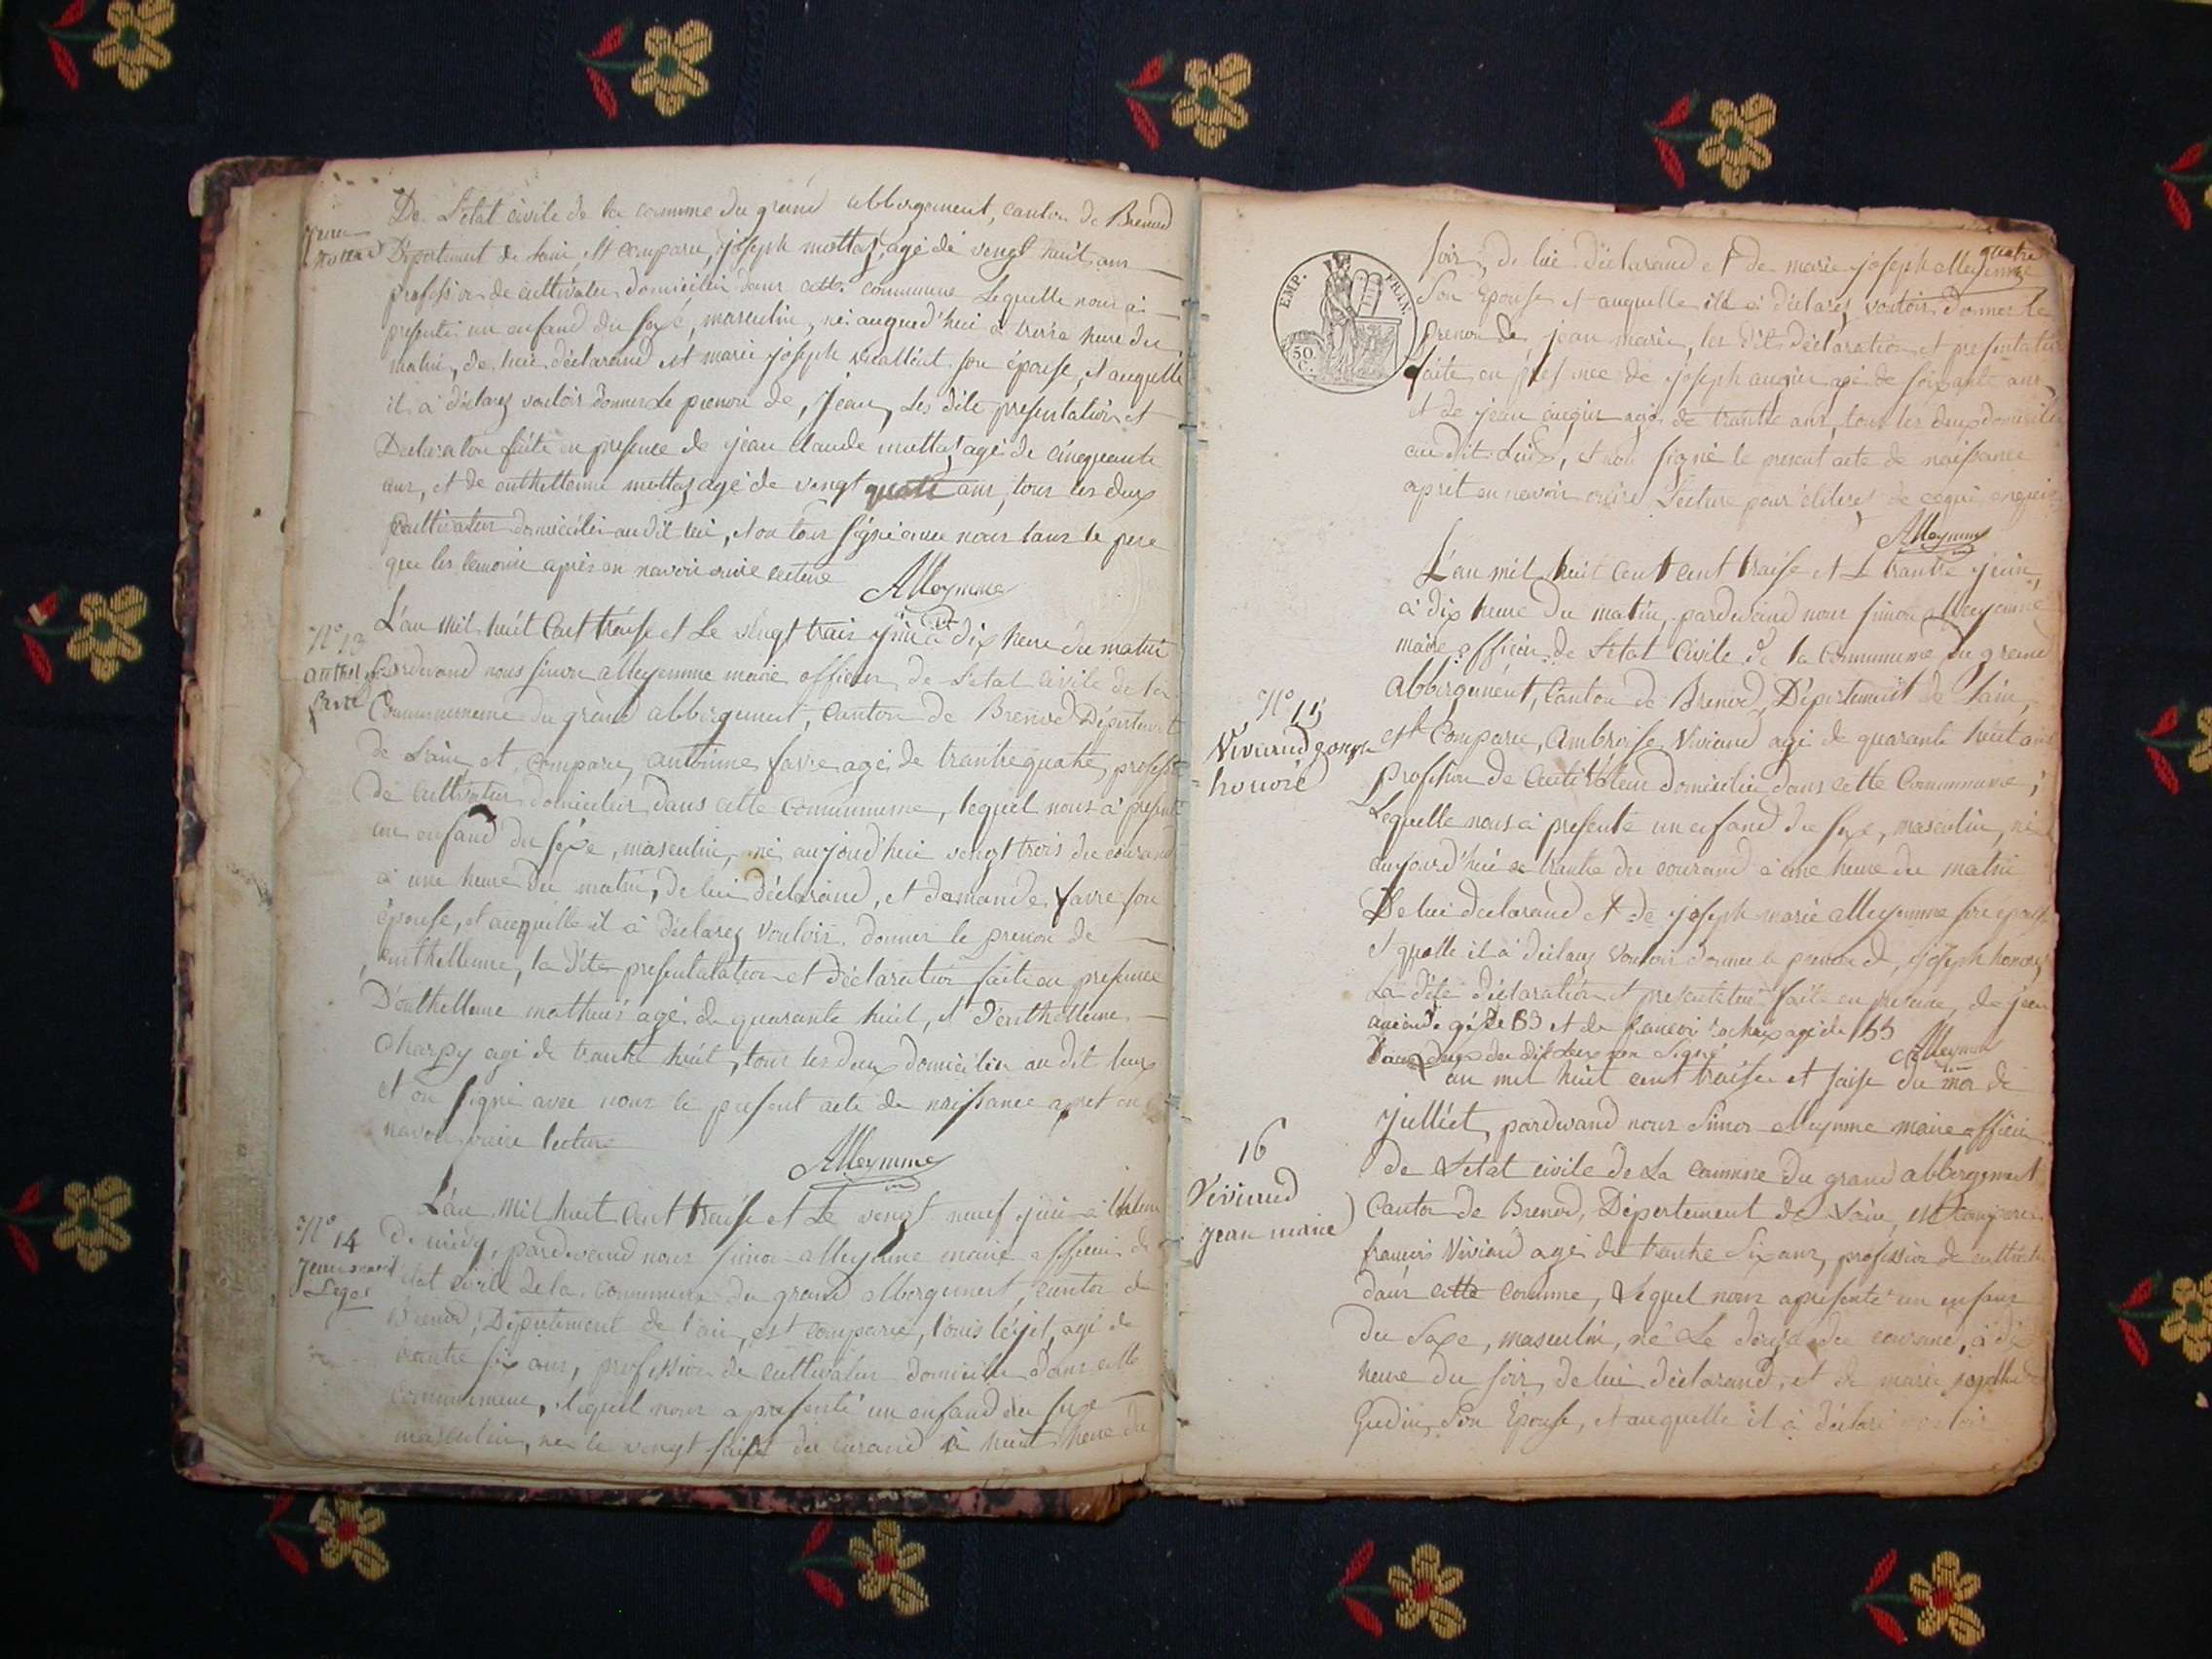 De L'etat civile de la comune du grand abbergement, canton de Brenod
Département de Lain, est comparu, joseph mottaz, agé de vengt huit ans
profession de cultivateur domicilié dans cette commune Lequelle nous a
presenté un enfand du sexe, masculin, né aujourd'hui a heure du
matin, de lui déclarand et marie joseph son épouse, et auquelle
il a déclarez vouloir donner Le prenon de, Jean, Les dite presentation et
Declaration faite en presence de jean Claude mottaz agé de cinquante
ans, et de anthellenne mottaz agé de vengt quatre ans, tous les deux
Cultivateur domicilié au dit lieu, et on tous signé avec nous tans le pere
que les temoins apres en navoir ouire lecture
Alleymme
N° 13
anthel
favre
L'an mil huit Cent traise et Le vengt trais juin à dix heure du matin
pardevand nous simon alleymme maire officier de L'etat civile de la
Communeme du grand abbergement, Canton de Brenod Département
de Lain, et comparu, antoinne favre agé de trantre quatre, profess
de cultivateur domicilié dans cette communeme, lequel nous a présenté
un enfand du sexe, masculin, né aujourd'hui vengt trois du courand
à une heure du matin, de lui déclarand, et damande favre son
épouse, et auquille il a déclarez vouloir donner le prenon de
anthellenne, la dite presentatation et déclaration faite en presence
D'anthellenne mathieu agé de quarante huit, et d'anthellenne
Charpy agé de trante huit, tous les deux domicilié au dit lieux
et on signé avec nous le present acte de naissance apret en
navoir ouire lecture
Alleymme
N° 14
Leger
L'an mil huit Cent traise et Le vengt neuf juin à heure
de midy, pardevand nous simon alleymme maire officier de
l'etat civile de la Commune du grand abbergement, canton de
Brenod, Département de l'ain, est comparu, louis léjet, agé de
trantre six ans, profession de cultivateur domicilié dans cette
communeme, lequel nous a presenté un enfand du sexe
masculin, né le vengt du curand à huit heure du
quatre
EMP. FRAN.
50 C.
soir, de lui déclarand et de marie joseph alleymme
Son Epouse et auquelle ill a déclarez vouloir donner le
prenon de, jean marie, les dits déclaration et presentation
faite en presence de joseph augier agé de soixante ans,
et de jean augier agé de trantre ans, tous les deux domicilié
au dit lieux, et non signé le present acte de naissance
apret en navoir ouire Lecture pour
Alleymme
N° 15
Viviand joseph
honoré
L'an mil huit cent cent traise et Le trantre juin,
à dix heure du matin, pardevand nous simon alleymme
maire officier de L'etat Civile de la Communeme du grand
abbergement, Canton de Brenod, Département de Lain,
et Comparu, Ambroise Viviand agé de quarante huit ans
profession de Cultivateur domicilié dans cette Communeme;
Lequelle nous a presenté un enfand du sexe, masculin, né
aujourd'hui trantre du courand à une heure du matin
De lui declarand et de joseph marie alleymme sont épouse
il a déclarez vouloir donner le prenon de, joseph honoré
La dite déclaration et presentation faite en presence de jean
agé de 33 et de françoi agé de 55
deux du dit lieux non signé
Alleymme
16
Viviand
jean marie
an mil huit cent traise et saise du moi de
julliet, pardevand nous Simon alleymme maire officier
de Letat civile de La comune du grand abbergement
Canton de Brenod, Département de Lain, est comparu
françois Viviand agé de trentre Six ans, profession de cultivate
dans cette comune, Lequel nous a presenté un enfans
du Sexe, masculin, né Le douze du courand, à dix
heure du soir, de lui déclarand, et de marie josephe
Gudin, Son Epouse, et auquelle il à déclaré vouloir